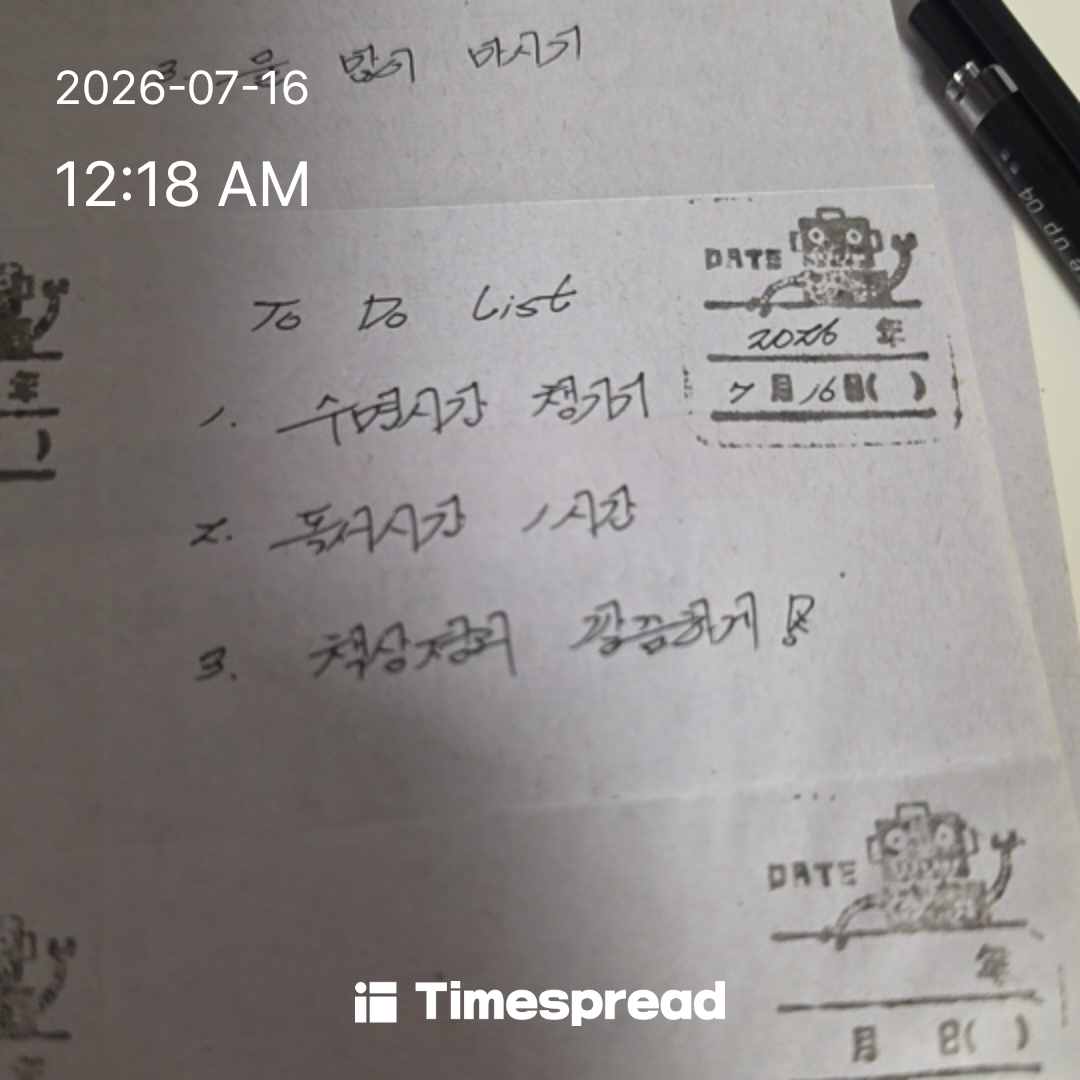 3. 물 많이 마시기
2026-07-16
12:18 AM
DATE
2026 年
7 月 16 日( )
To Do List
1. 수면시간 챙기기
2. 독서시간 1시간
3. 책상정리 깔끔하게!
DATE
年
月 日( )
年
)
Timespread